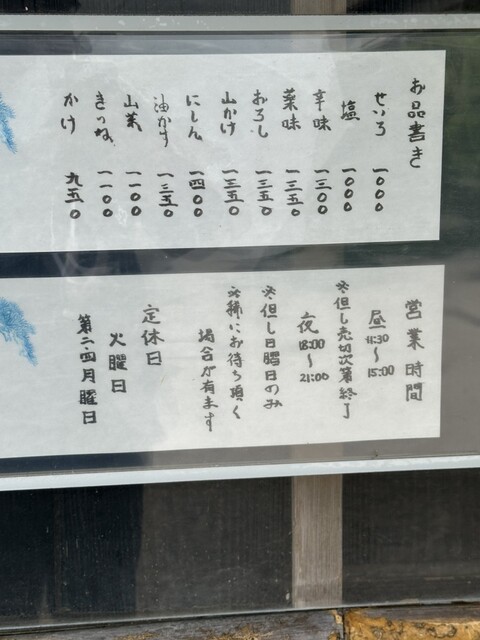 お品書き
せいろ 一〇〇〇
塩 一〇〇〇
辛味 一三〇〇
薬味 一三五〇
おろし 一三五〇
山かけ 一三五〇
にしん 一四〇〇
油かす 一三五〇
山菜 一一〇〇
きつね 一一〇〇
かけ 九五〇
営業時間
昼 11:30〜15:00
※但し売切次第終了
夜 18:00〜21:00
※但し日曜日のみ
※稀にお待ち頂く
場合が有ます
定休日
火曜日
第二・四月曜日